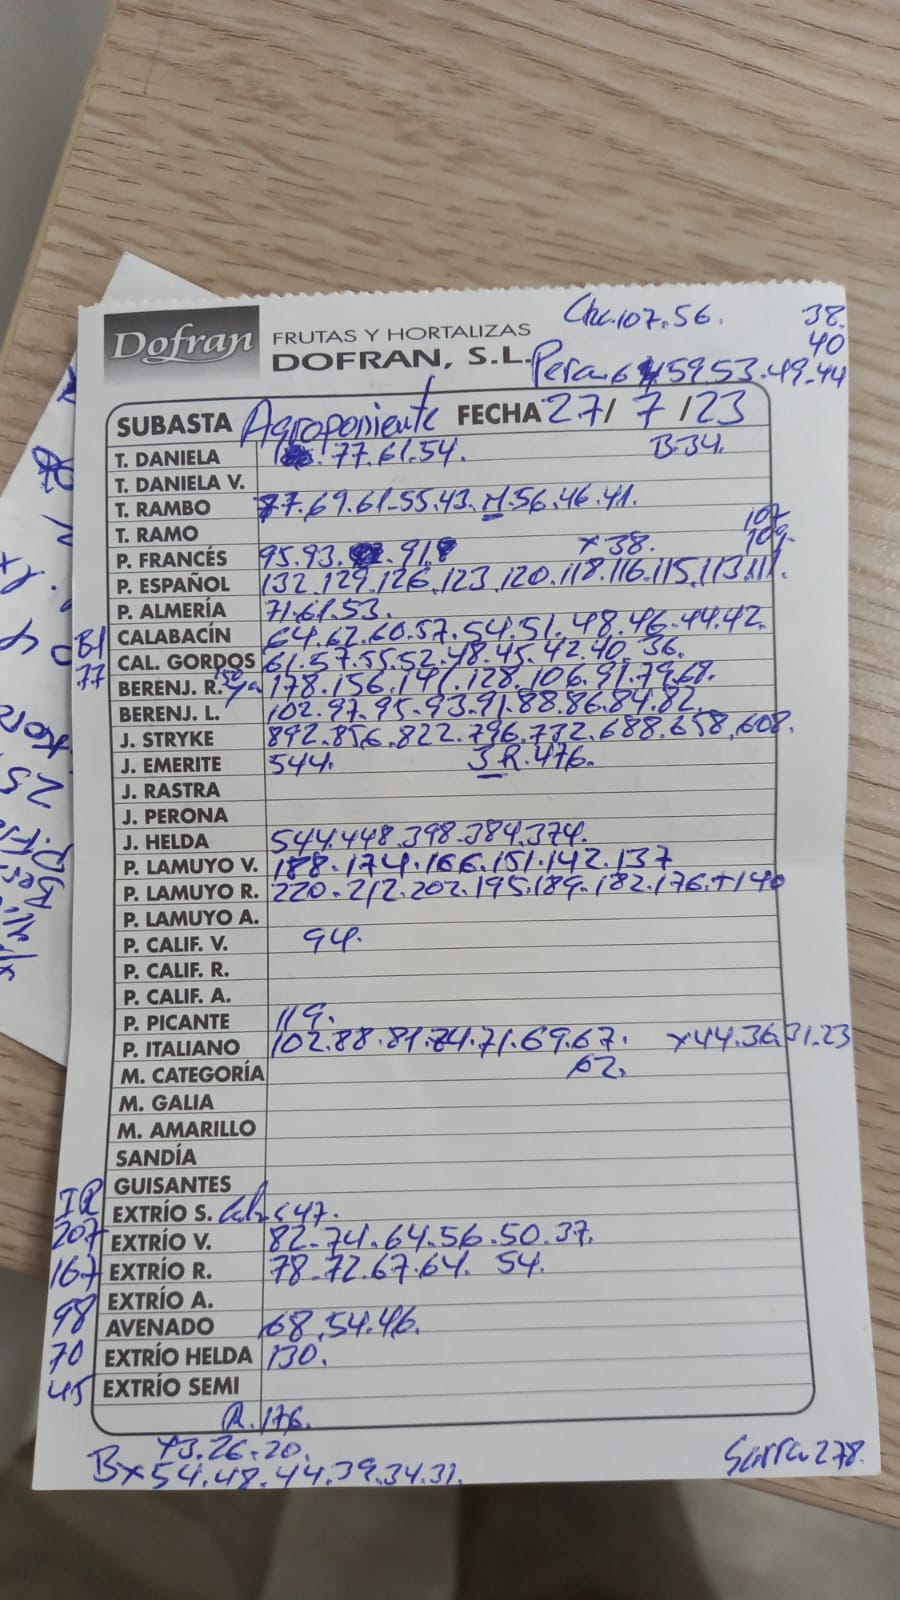 Dofran FRUTAS Y HORTALIZAS
DOFRAN, S.L.
Che.107.56. 38.
40
Pera 59.53.49.44
SUBASTA Agroponiente FECHA 27/7/23
T. DANIELA .77.61.54. B.34.
T. DANIELA V.
T. RAMBO 77.69.61-55.43. M.56.46.41.
T. RAMO 107
P. FRANCÉS 95.93. 91. x38. 109.
P. ESPAÑOL 132.129.126.123.120.118.116.115.113.111.
P. ALMERÍA 71.61.53.
CALABACÍN 64.62.60.57.54.51.48.46.44.42.
CAL. GORDOS 61.57.55.52.48.45.42.40.36.
77 BERENJ. R. 178.156.141.128.106.91.79.68.
BERENJ. L. 102.97.95.93.91.88.86.84.82.
J. STRYKE 892.856.822.796.732.688.658.608.
J. EMERITE 544. JR.476.
J. RASTRA
J. PERONA
J. HELDA 544.448.398.384.374.
P. LAMUYO V. 188.174.166.151.142.137
P. LAMUYO R. 220.212.202.195.189.182.176.+140
P. LAMUYO A.
P. CALIF. V. 94.
P. CALIF. R.
P. CALIF. A.
P. PICANTE 119.
P. ITALIANO 102.88.81.74.71.69.67. x44.36.31.23
M. CATEGORÍA 62.
M. GALIA
M. AMARILLO
SANDÍA
GUISANTES
EXTRÍO S. 47.
207 EXTRÍO V. 82-74.64.56.50.37.
167 EXTRÍO R. 78-72.67.64. 54.
EXTRÍO A.
98 AVENADO 68.54.46.
70 EXTRÍO HELDA 130.
45 EXTRÍO SEMI
R.176.
43.26.20.
Bx54.48.44.39.34.31.
Sarra 278.